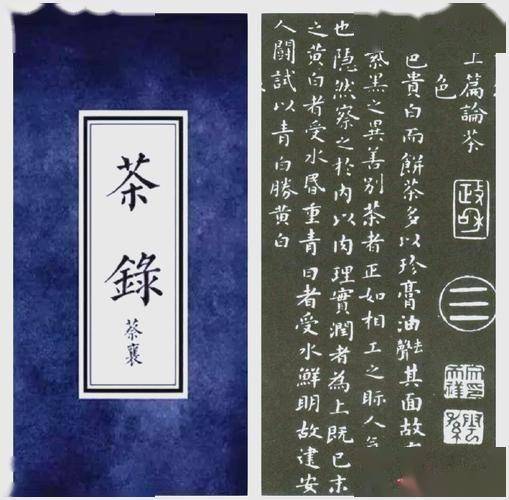 茶錄
蔡襄
上篇論茶
色
貴白而餅茶多以珍膏油去聲其面故
紫黑之異善別茶者正如相工之眎人
也隱然察之於內以肉理實潤者為上既已末
之黃白者受水昏重青白者受水鮮明故建安
人鬪試以青白勝黃白
政和